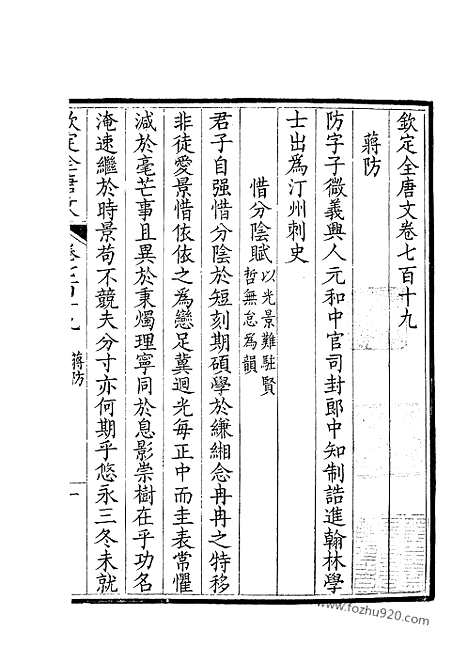 欽定全唐文卷七百十九
蔣防
防字子微義興人元和中官司封郎中知制誥進翰林學
士出為汀州刺史
惜分陰賦以光景難駐賢
哲無怠為韻
君子自强惜分陰於短刻期碩學於縑緗念冉冉之特移
非徒愛景惜依依之為戀足冀迴光每正中而圭表常懼
減於毫芒事且異於秉燭理寧同於息影崇樹在乎功名
淹速繼於時景苟不競夫分寸亦何期乎悠永三冬未就
欽定全唐文 卷七百十九 蔣防 一
www.fozhu920.com